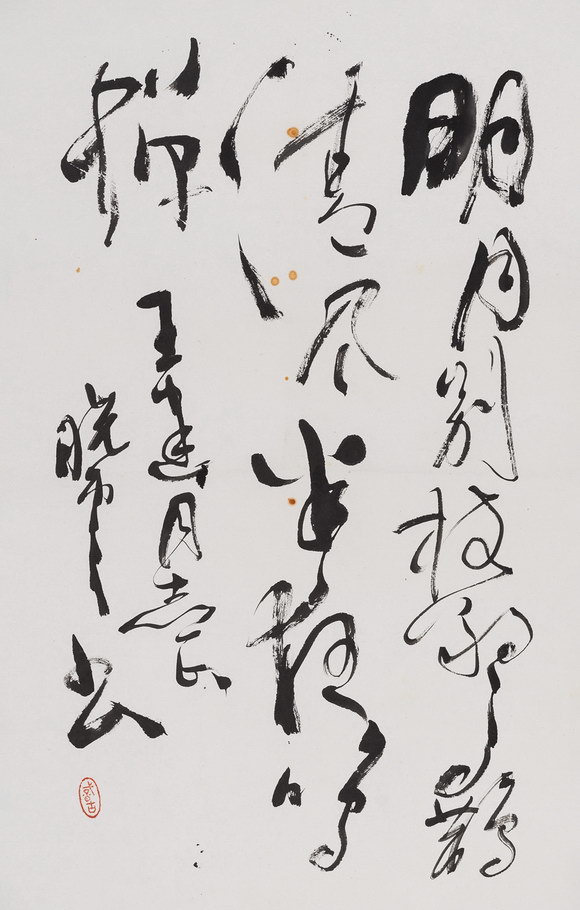 明月别枝惊鹊
清风半夜鸣
蝉
王建同志正
书